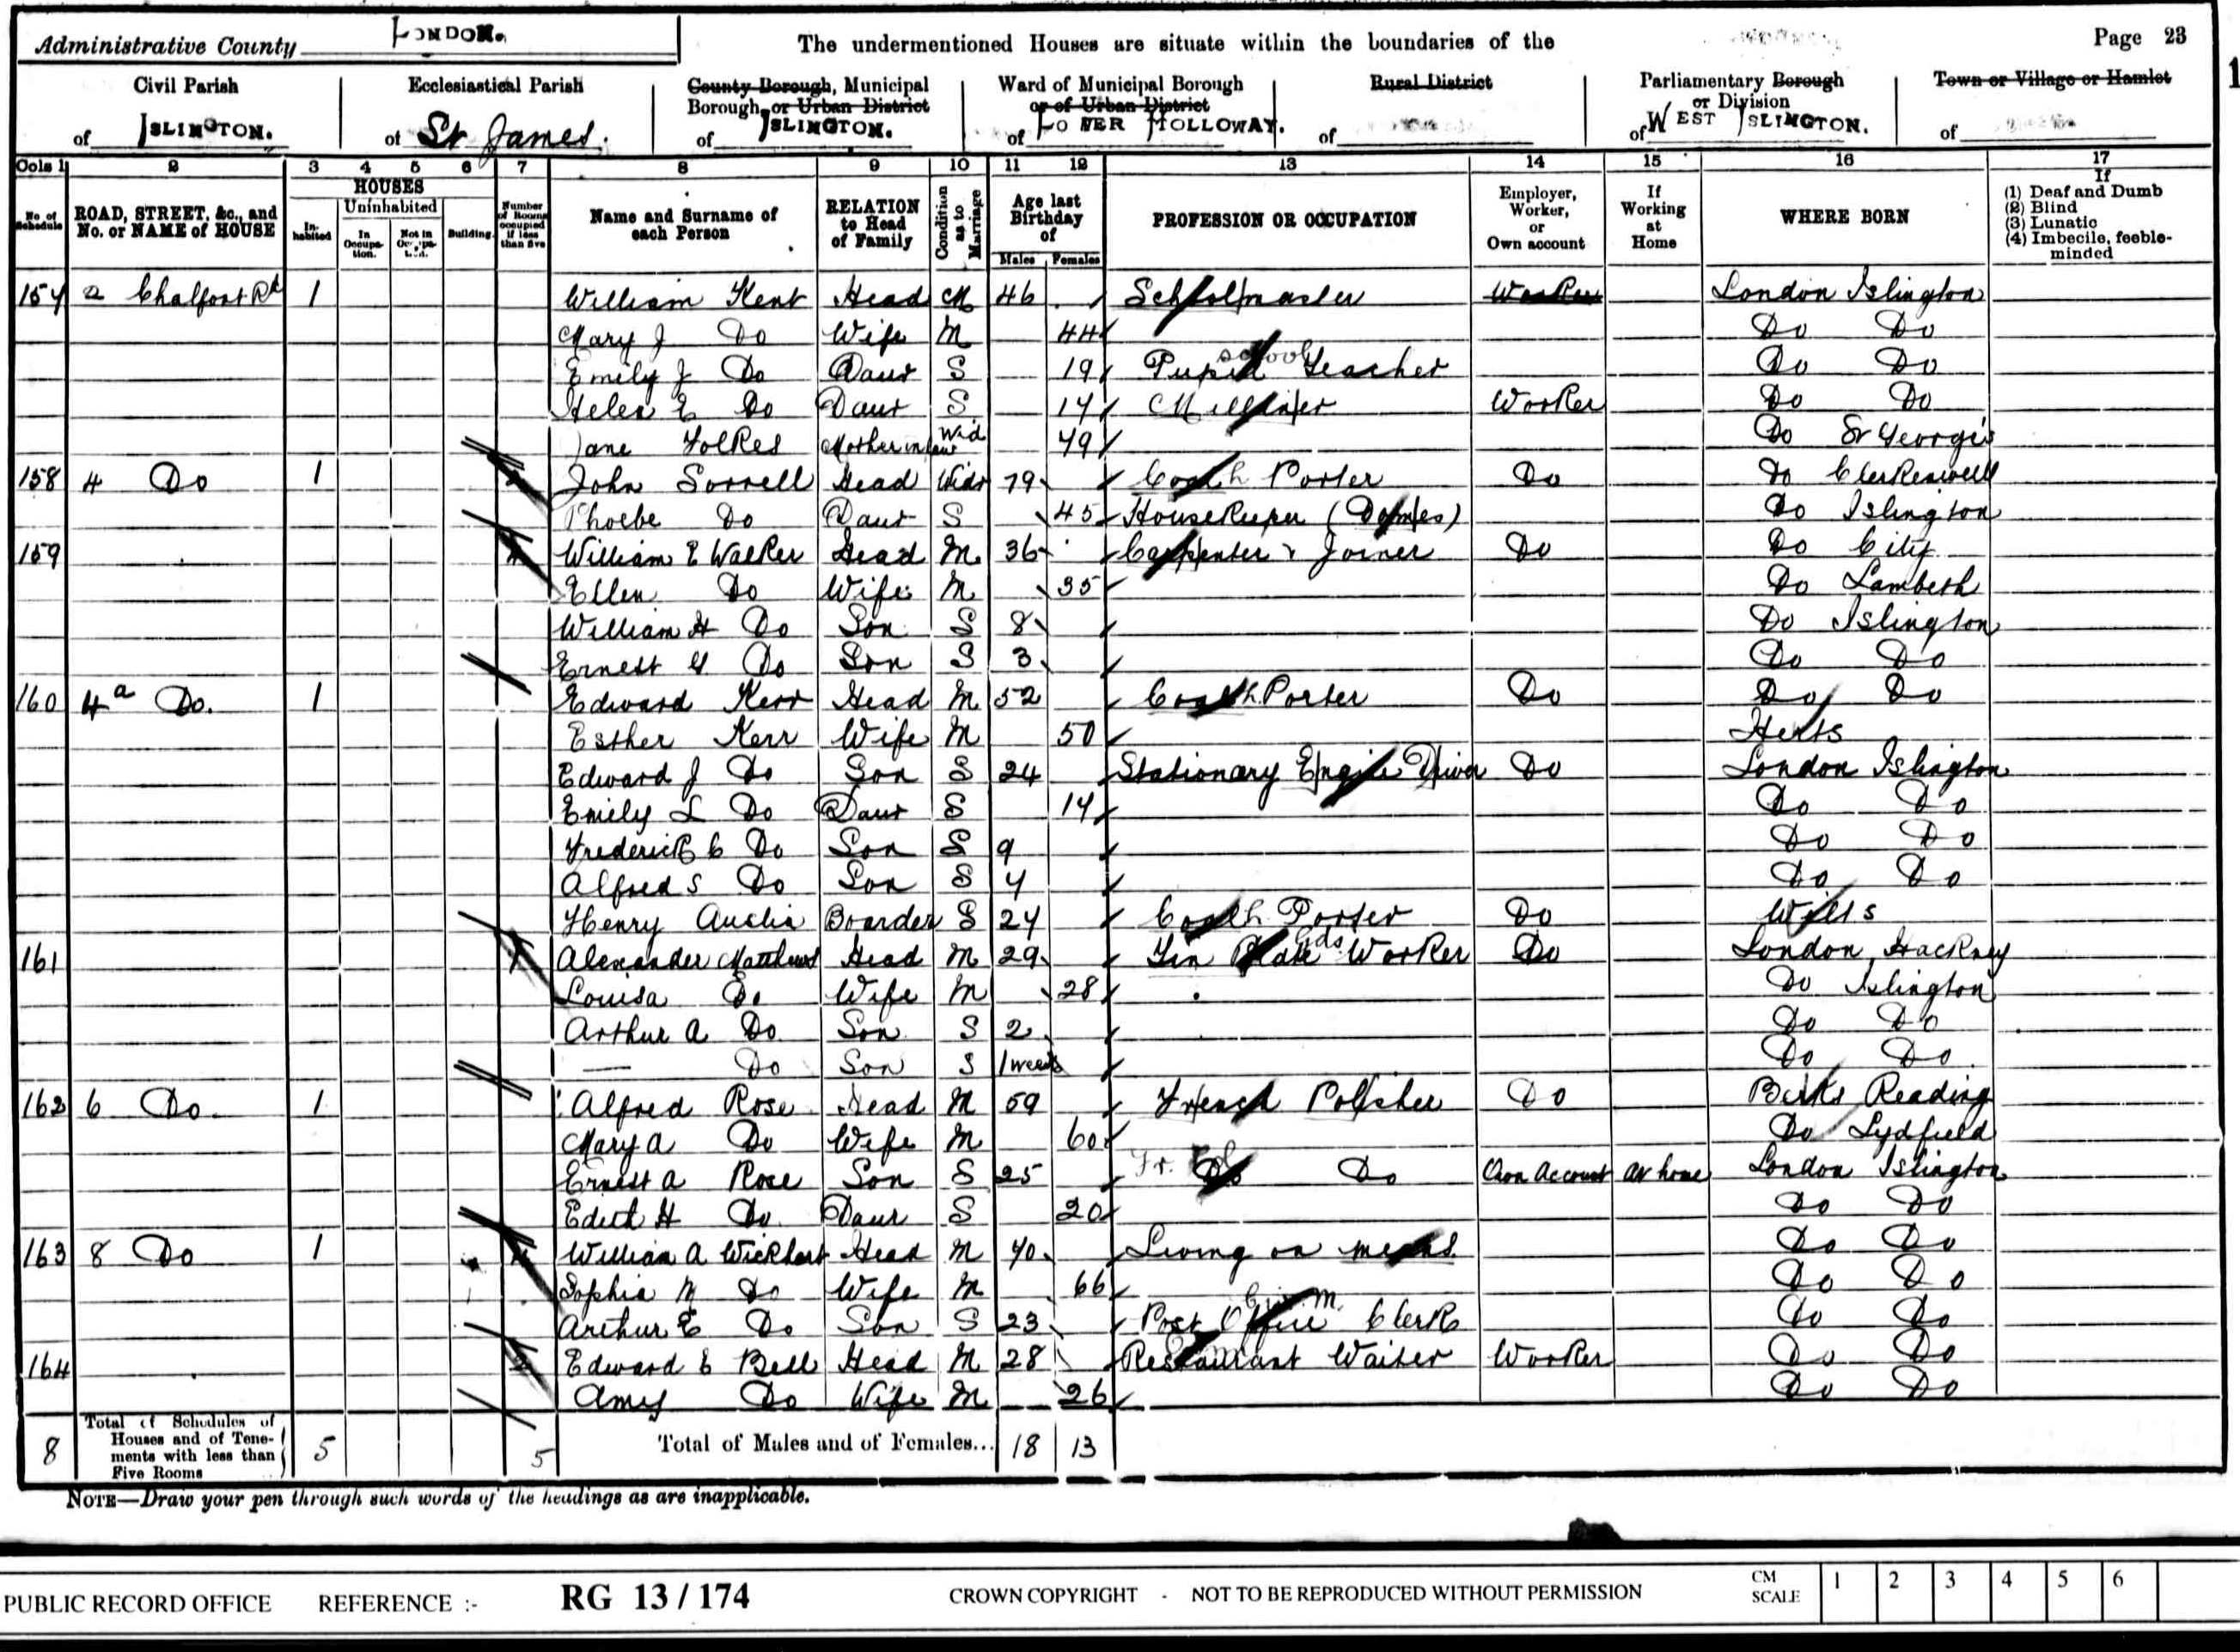 Administrative County LONDON. The undermentioned Houses are situate within the boundaries of the Page 23
Civil Parish of ISLINGTON.
Ecclesiastical Parish of St James.
County Borough, Municipal Borough, or Urban District of ISLINGTON.
Ward of Municipal Borough or of Urban District of LOWER HOLLOWAY.
Rural District of
Parliamentary Borough or Division of WEST ISLINGTON.
Town or Village or Hamlet of
Cols 1 2 3 4 5 6 7 8 9 10 11 12 13 14 15 16 17
No. of Schedule
ROAD, STREET, &c., and No. or NAME of HOUSE
HOUSES
Inhabited
Uninhabited
In Occupation.
Not in Occupation.
Building
Number of Rooms occupied if less than five
Name and Surname of each Person
RELATION to Head of Family
Condition as to Marriage
Age last Birthday of
Males Females
PROFESSION OR OCCUPATION
Employer, Worker, or Own account
If Working at Home
WHERE BORN
If
(1) Deaf and Dumb
(2) Blind
(3) Lunatic
(4) Imbecile, feeble-minded
157 2 Chalfont Rd 1 William Kent Head M 46 Schoolmaster Worker London Islington
Mary J Do Wife M 44 Do Do
Emily J Do Daur S 19 Pupil school Teacher Do Do
Helen E Do Daur S 17 Milliner Worker Do Do
Jane Mother in law Wid 79 Do St Georges
158 4 Do 1 John Sorrell Head Widr 79 Coach Porter Do Do Clerkenwell
Phoebe Do Daur S 45 Housekeeper (Domes) Do Islington
159 William E Walker Head M 36 Carpenter & Joiner Do Do City
Ellen Do Wife M 35 Do Lambeth
William H Do Son S 8 Do Islington
Ernest G Do Son S 3 Do Do
160 4a Do. 1 Edward Kerr Head M 52 Coach Porter Do Do Do
Esther Kerr Wife M 50 Herts
Edward J Do Son S 24 Stationary Engine Driver Do London Islington
Emily L Do Daur S 14 Do Do
Frederick C Do Son S 9 Do Do
Alfred S Do Son S 7 Do Do
Henry Austin Boarder S 27 Coach Porter Do Wilts
161 Alexander Matthews Head M 29 Tin Plate Gds Worker Do London Hackney
Louisa Do Wife M 28 Do Islington
Arthur A Do Son S 2 Do Do
— Do Son S 1 week Do Do
162 6 Do 1 Alfred Rose Head M 59 French Polisher Do Berks Reading
Mary A Do Wife M 60 Do Lydfield
Ernest A Rose Son S 25 Fr. Pol Do Do Own Account At home London Islington
Edith H Do Daur S 20 Do Do
163 8 Do 1 4 William A Head M 70 Living on means Do Do
Sophia M Do Wife M 66 Do Do
Arthur E Do Son S 23 Post Office Clerk Do Do
164 2 Edward E Bell Head M 28 Restaurant Waiter Worker Do Do
Amy Do Wife M 26 Do Do
8 Total of Schedules of Houses and of Tenements with less than Five Rooms 5 5 Total of Males and of Females... 18 13
NOTE—Draw your pen through such words of the headings as are inapplicable.
PUBLIC RECORD OFFICE REFERENCE :- RG 13 / 174 CROWN COPYRIGHT - NOT TO BE REPRODUCED WITHOUT PERMISSION CM SCALE 1 2 3 4 5 6